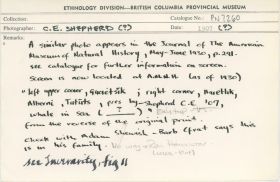 ETHNOLOGY DIVISION—BRITISH COLUMBIA PROVINCIAL MUSEUM
Collection: Catalogue No.: PN 7260
Photographer: C.E. SHEPHERD (?) Date: 1907 (?)
Remarks:
A similar photo appears in the Journal of The American
Museum of Natural History, May-June 1930, p. 291.
see catalogue for further information on screen.
Screen is now located at A.M.N.H. (as of 1930)
"left upper corner, ; right corner,
, ; by Shepherd C.E. '07,
whale in Sea
from the reverse of the original print.
check with Adam Shewish - Barb Efrat says this
is in his family.
see Inverarity, fig 11